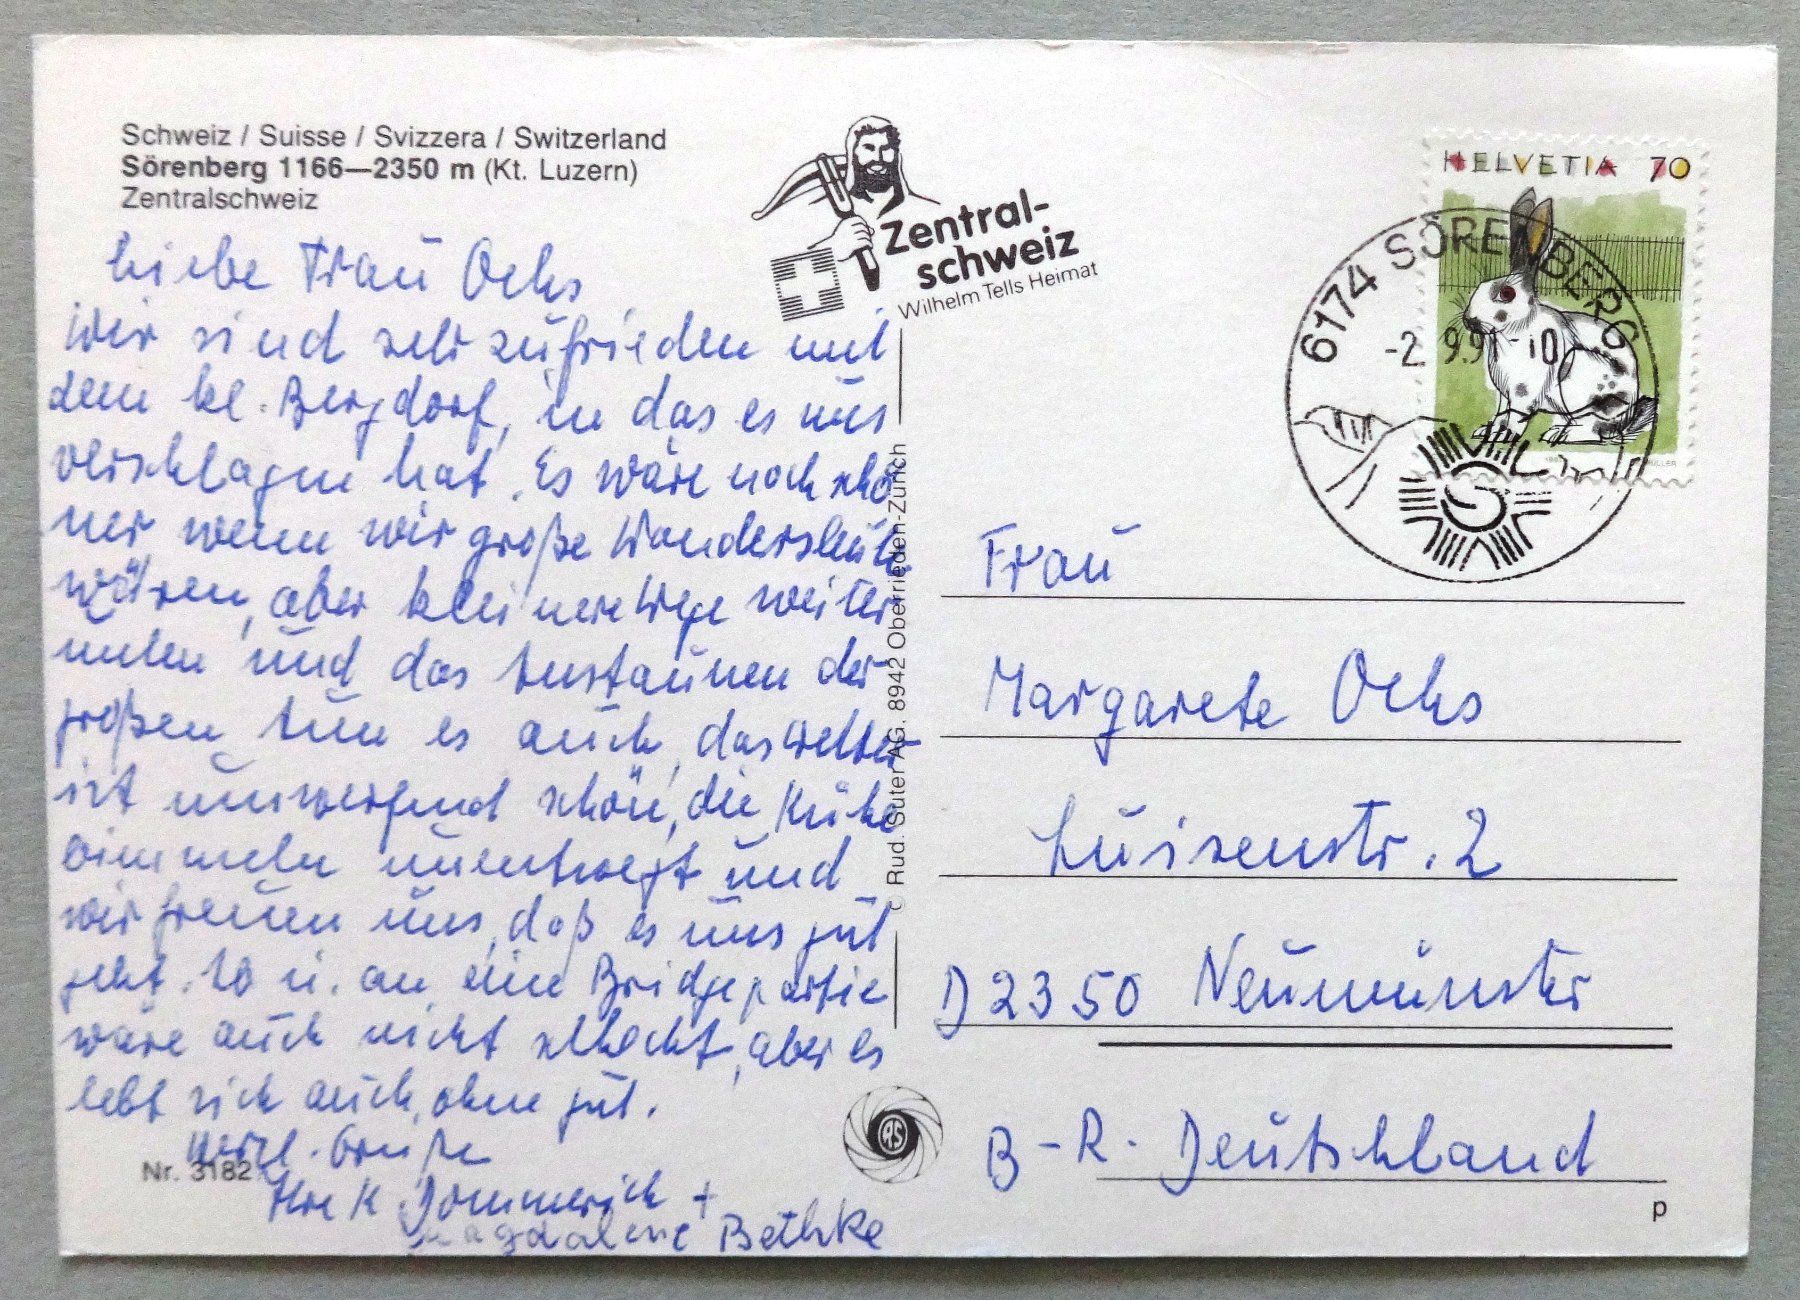 Schweiz / Suisse / Svizzera / Switzerland
Sörenberg 1166—2350 m (Kt. Luzern)
Zentralschweiz
Zentral-
schweiz
Wilhelm Tells Heimat
HELVETIA 70
6174 SÖRENBERG
-2. 9.9 -10
Liebe Frau Ochs
Wir sind sehr zufrieden mit
dem kl. Bergdorf, in das es uns
verschlagen hat. Es wäre noch schö
ner wenn wir große Wandersleute
wären, aber kleinere Wege weiter
unten und das Anstaunen der
großen tun es auch, das Wetter
ist umwerfend schön, die Kühe
bimmeln unentwegt und
wir freuen uns, daß es uns gut
geht. So u. an eine Bridgepartie
wäre auch nicht schlecht, aber es
lebt sich auch ohne gut.
Herzl. Grüße
Ihre K Dommerich +
Magdalene Bethke
Nr. 3182
© Rud. Suter AG. 8942 Oberrieden-Zürich
RS
Frau
Margarete Ochs
Luisenstr. 2
D 2350 Neumünster
B-R. Deutschland
p